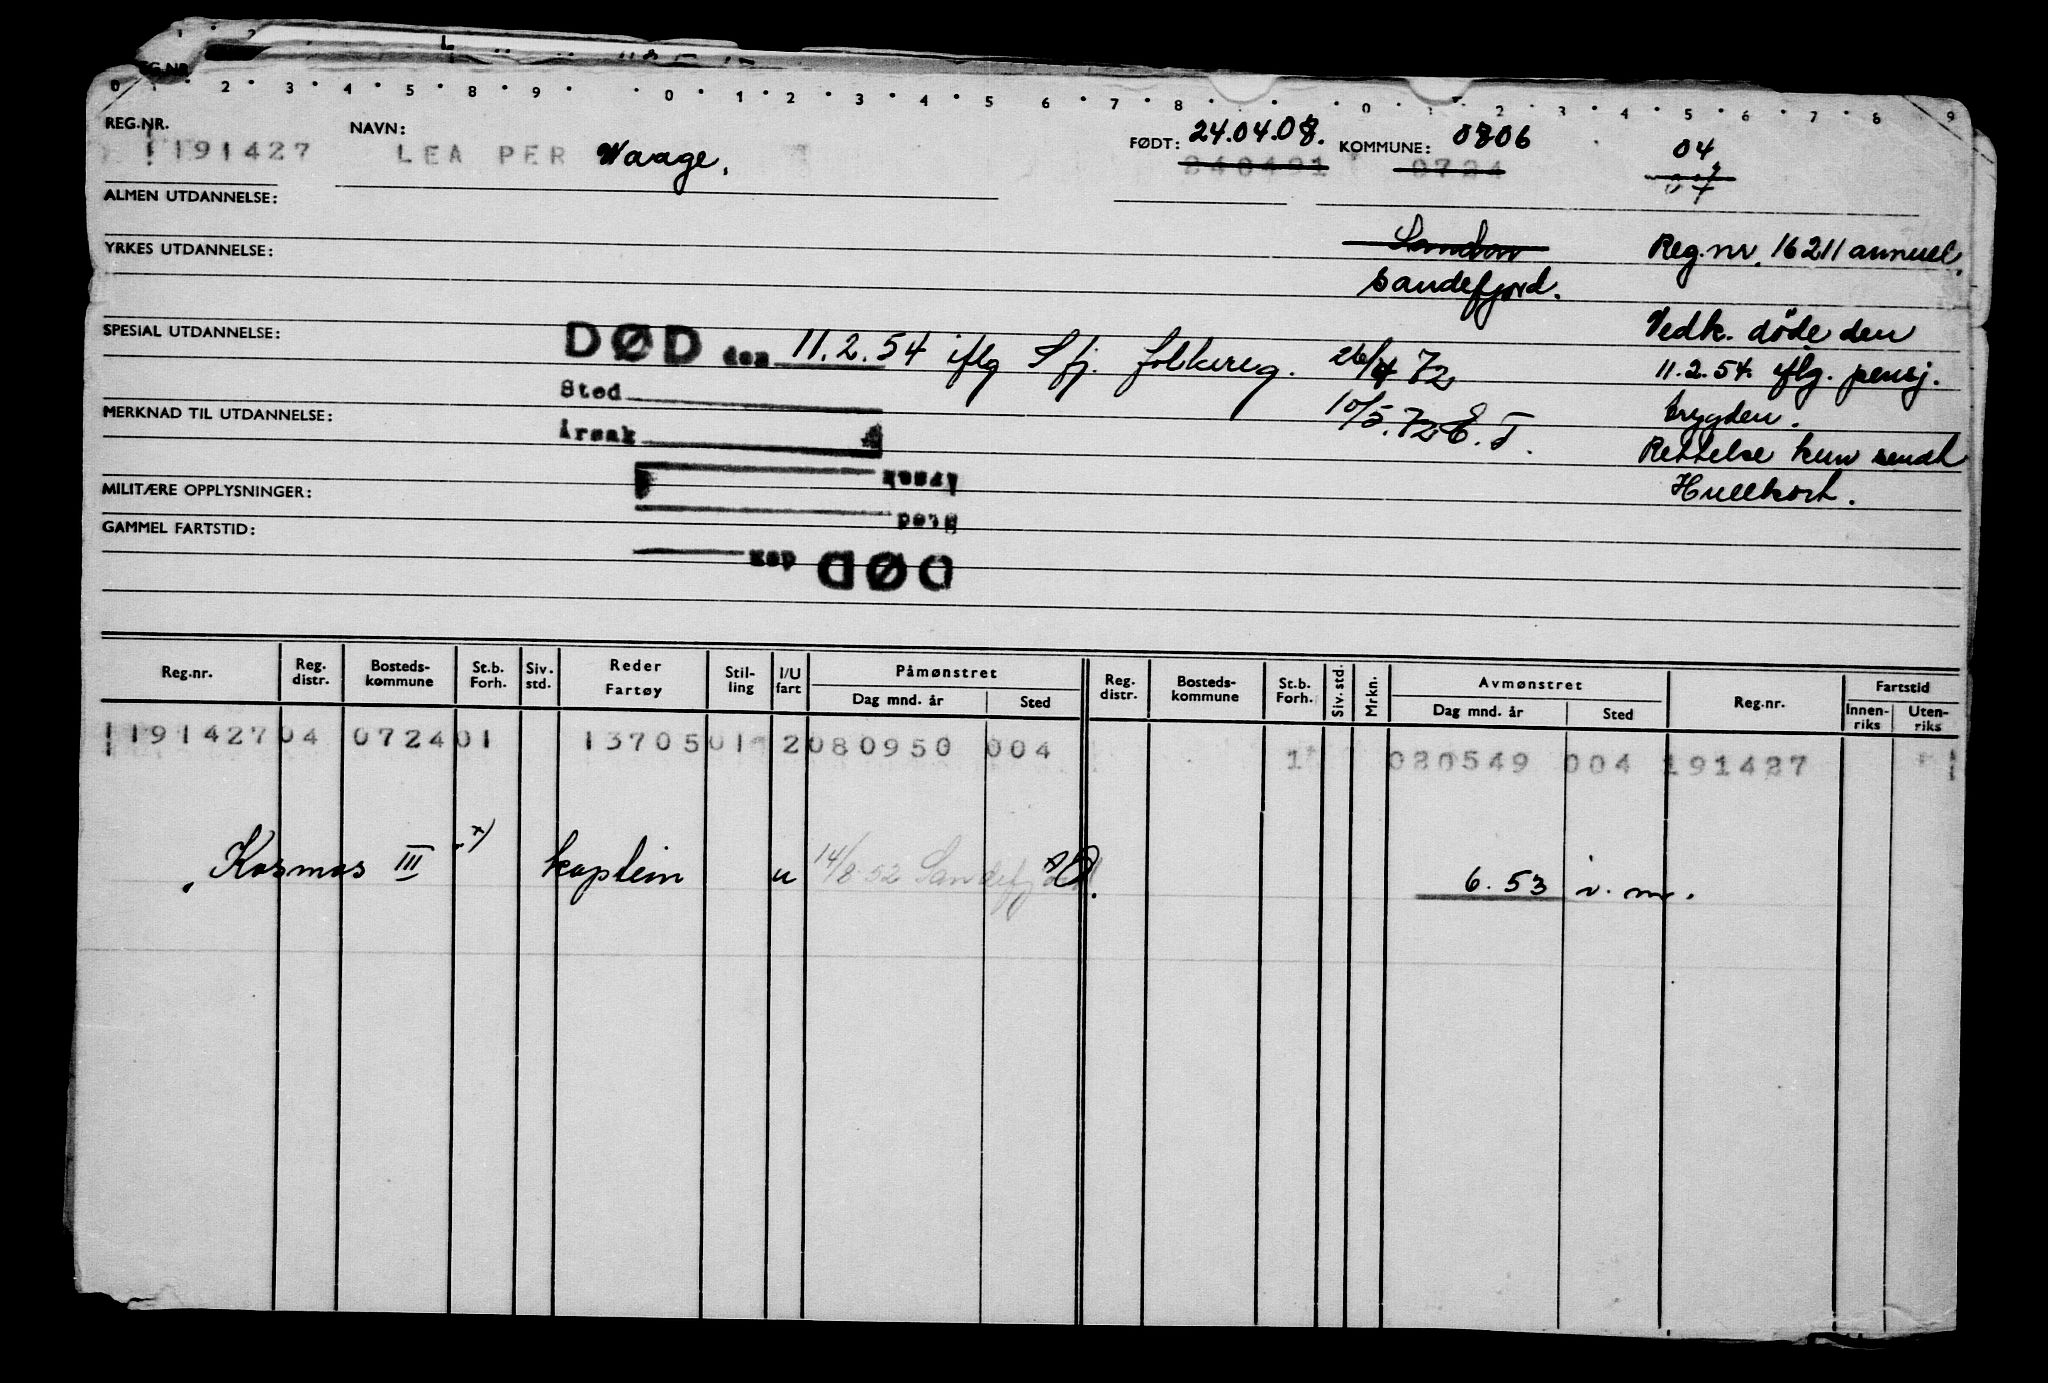 0 2 3 4 5 8 9 0 1 2 3 4 5 6 7 8 0 1 2 3 4 5 6 7 8 9
REG.NR. NAVN: FØDT: 24.04.08. KOMMUNE: 0806 04
191427 LEA PER Waage. 240491 0724 07
ALMEN UTDANNELSE:
YRKES UTDANNELSE: London Reg.nr. 16211 annuel.
Sandefjord.
SPESIAL UTDANNELSE: Vedk. døde den
DØD den 11.2.54 iflg Sfj. folkereg. 26/4 72 11.2.54. iflg. pensj.
Sted 10/5.72 E.T. trygden.
MERKNAD TIL UTDANNELSE:
Årsak Rettelse kun sendt
Årsak
MILITÆRE OPPLYSNINGER: Hullkort.
Sted
GAMMEL FARTSTID:
DØD den
Reg.nr. Reg. distr. Bosteds-kommune St.b. Forh. Siv. std. Reder Fartøy Stil-ling I/U fart Påmønstret Dag mnd. år Sted Reg. distr. Bosteds-kommune St.b. Forh. Siv. std. Mrkn. Avmønstret Dag mnd. år Sted Reg.nr. Fartstid Innen-riks Uten-riks
191427 04 0724 01 13705 01 2 080950 004 1 020549 004 191427
Kosmos III x) kaptein u 14/8 52 Sandefjord 6.53 i. m.